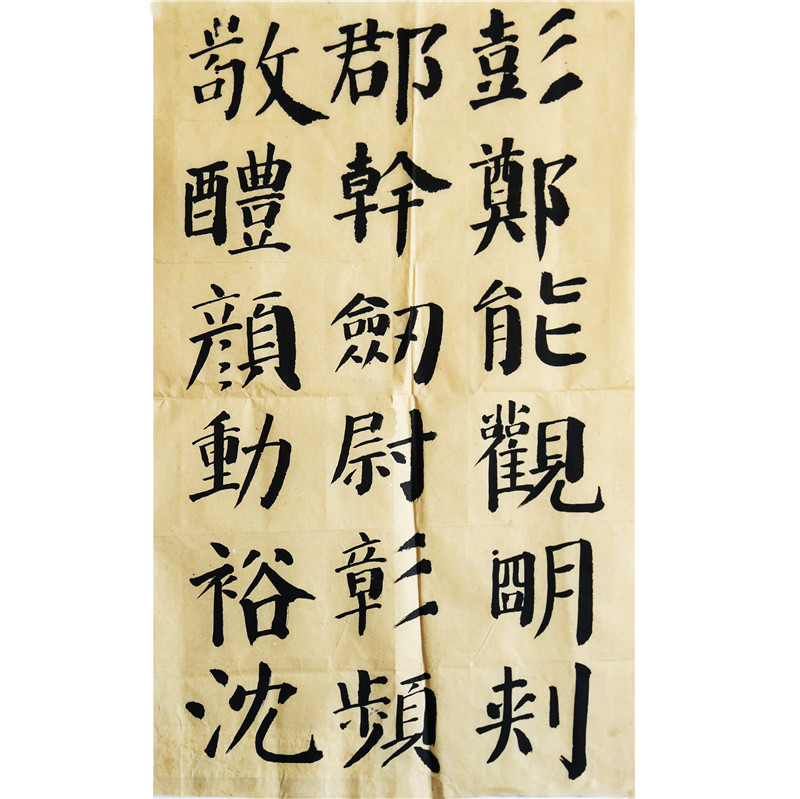 彭鄭能觀朙刾
郡幹劒尉彰頻
敬醴顔動裕沈